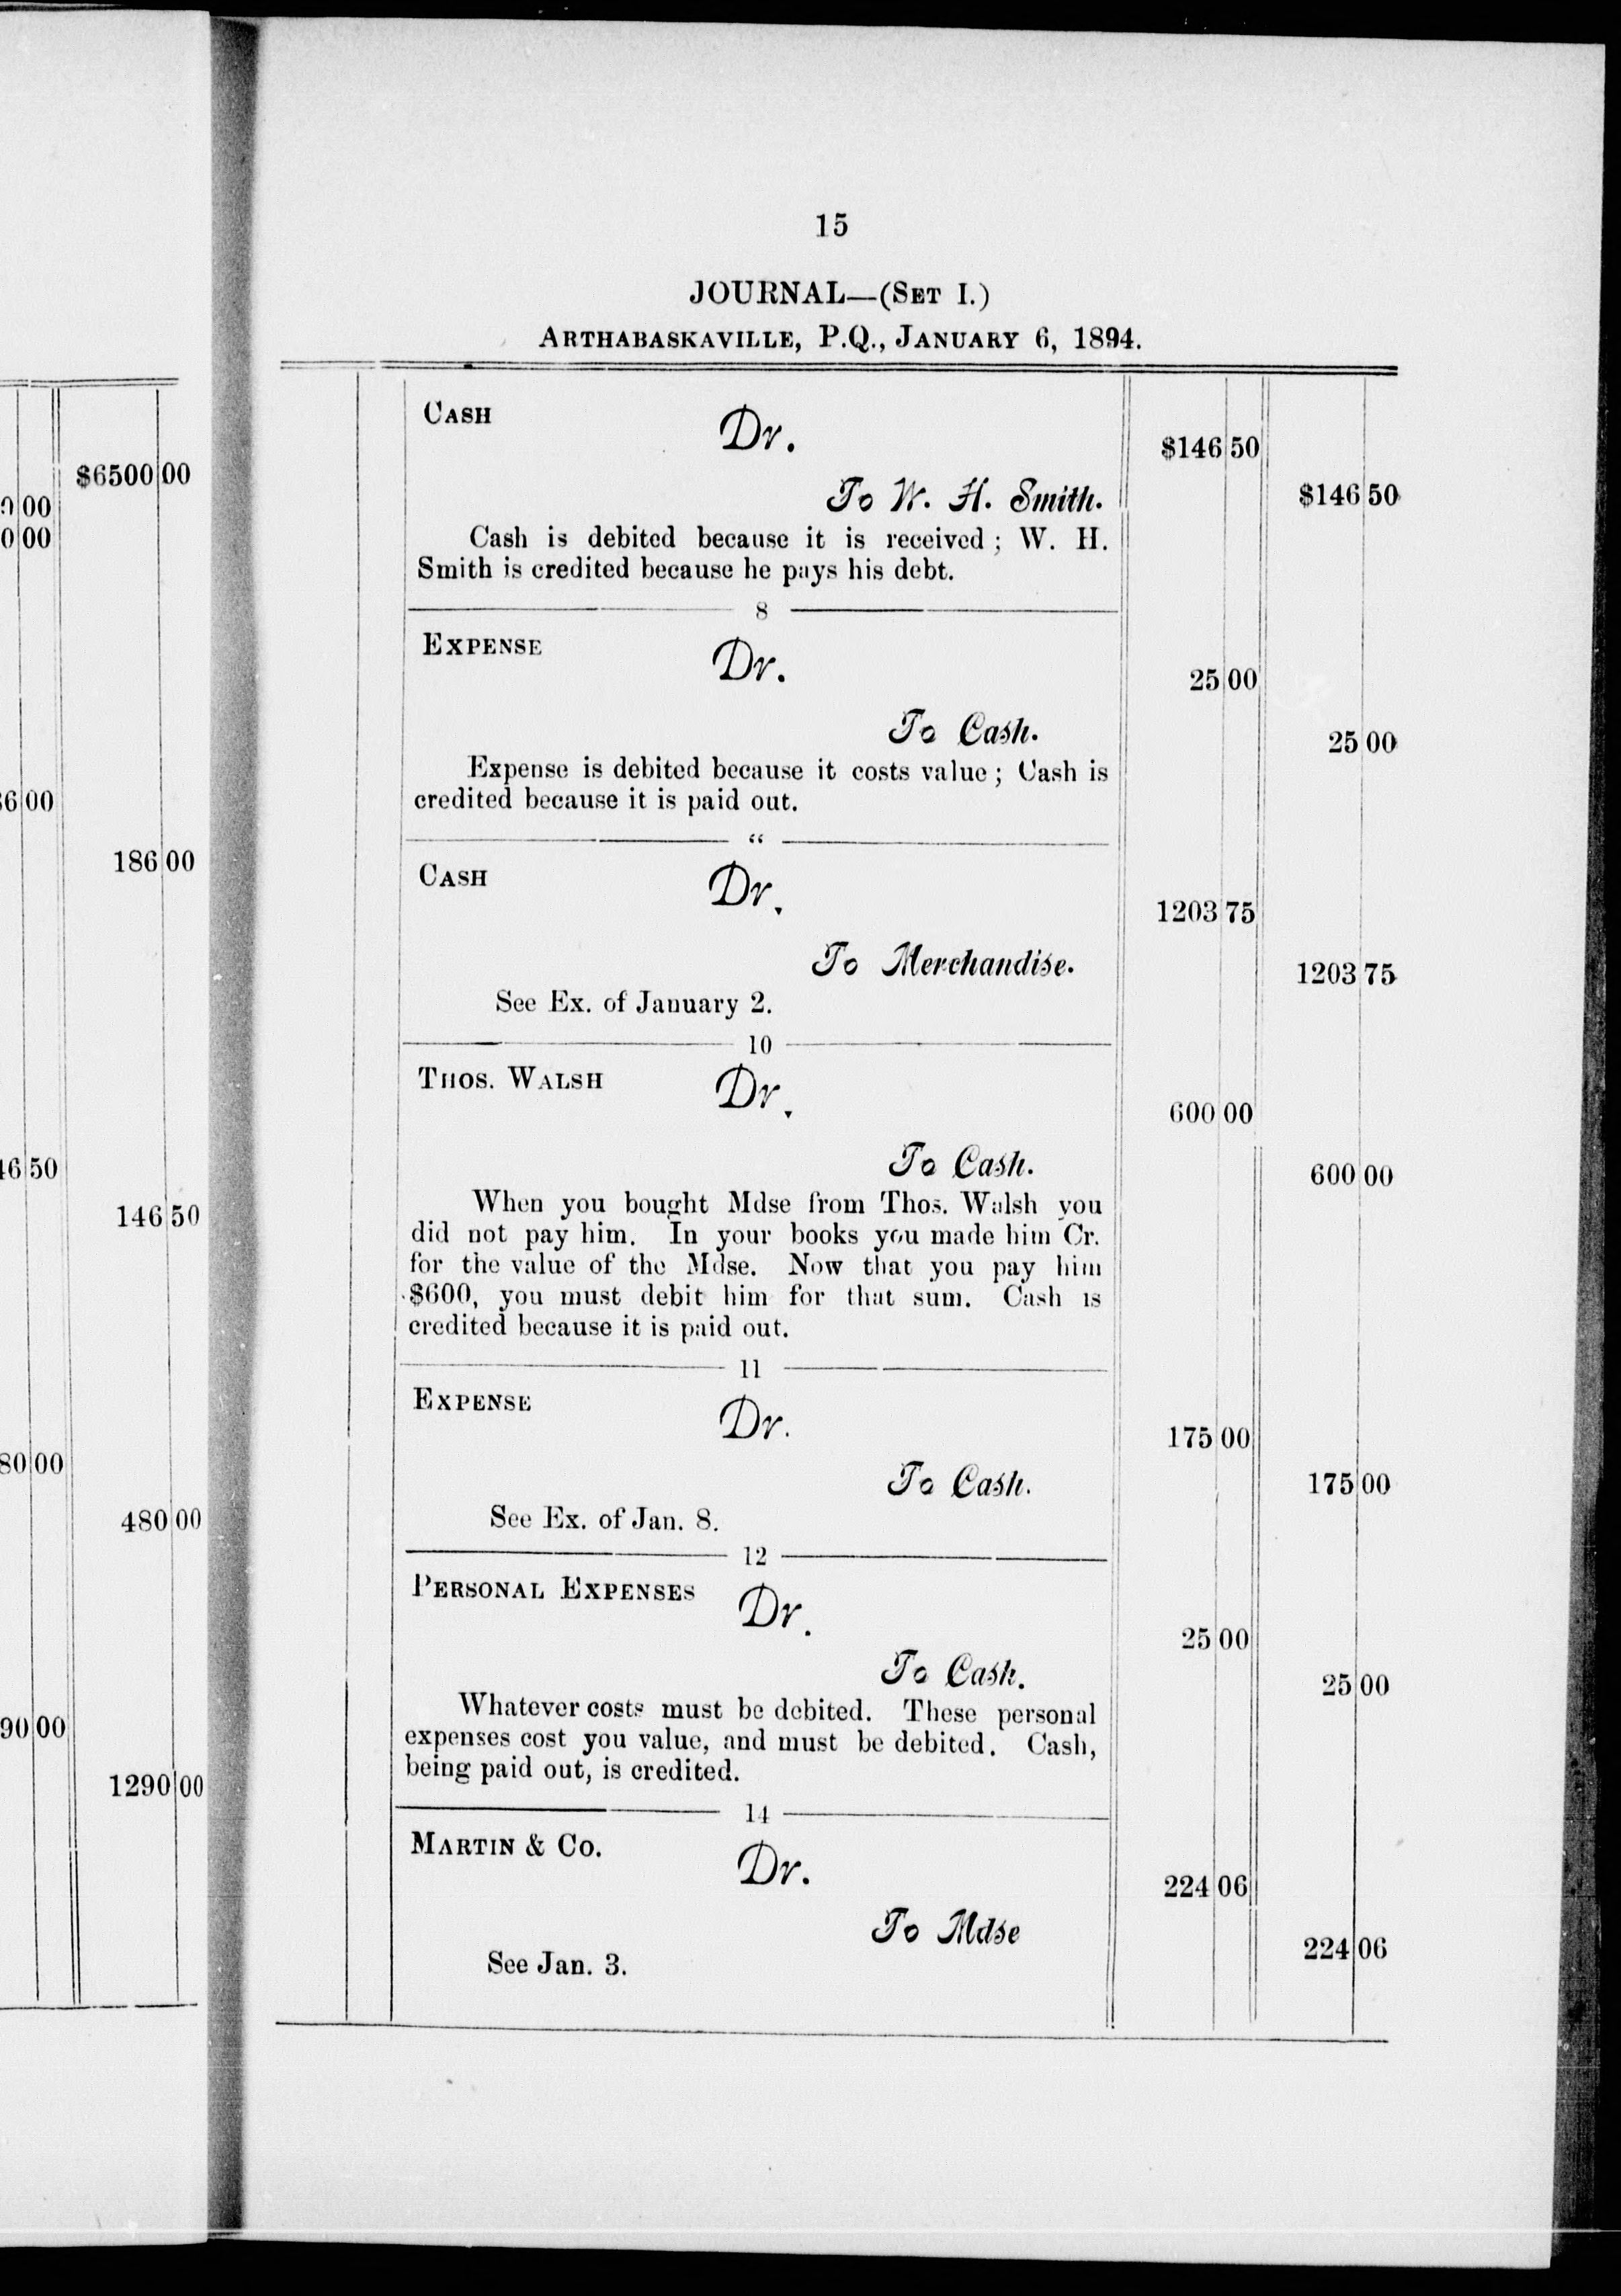 $6500 00
00
0 00
6 00
186 00
6 50
146 50
80 00
480 00
90 00
1290 00
15
JOURNAL—(SET I.)
ARTHABASKAVILLE, P.Q., JANUARY 6, 1894.
CASH Dr. $146 50
To W. H. Smith. $146 50
Cash is debited because it is received; W. H.
Smith is credited because he pays his debt.
8
EXPENSE Dr. 25 00
To Cash. 25 00
Expense is debited because it costs value; Cash is
credited because it is paid out.
“
CASH Dr. 1203 75
To Merchandise. 1203 75
See Ex. of January 2.
10
THOS. WALSH Dr. 600 00
To Cash. 600 00
When you bought Mdse from Thos. Walsh you
did not pay him. In your books you made him Cr.
for the value of the Mdse. Now that you pay him
$600, you must debit him for that sum. Cash is
credited because it is paid out.
11
EXPENSE Dr. 175 00
To Cash. 175 00
See Ex. of Jan. 8.
12
PERSONAL EXPENSES Dr. 25 00
To Cash. 25 00
Whatever costs must be debited. These personal
expenses cost you value, and must be debited. Cash,
being paid out, is credited.
14
MARTIN & CO. Dr. 224 06
To Mdse 224 06
See Jan. 3.